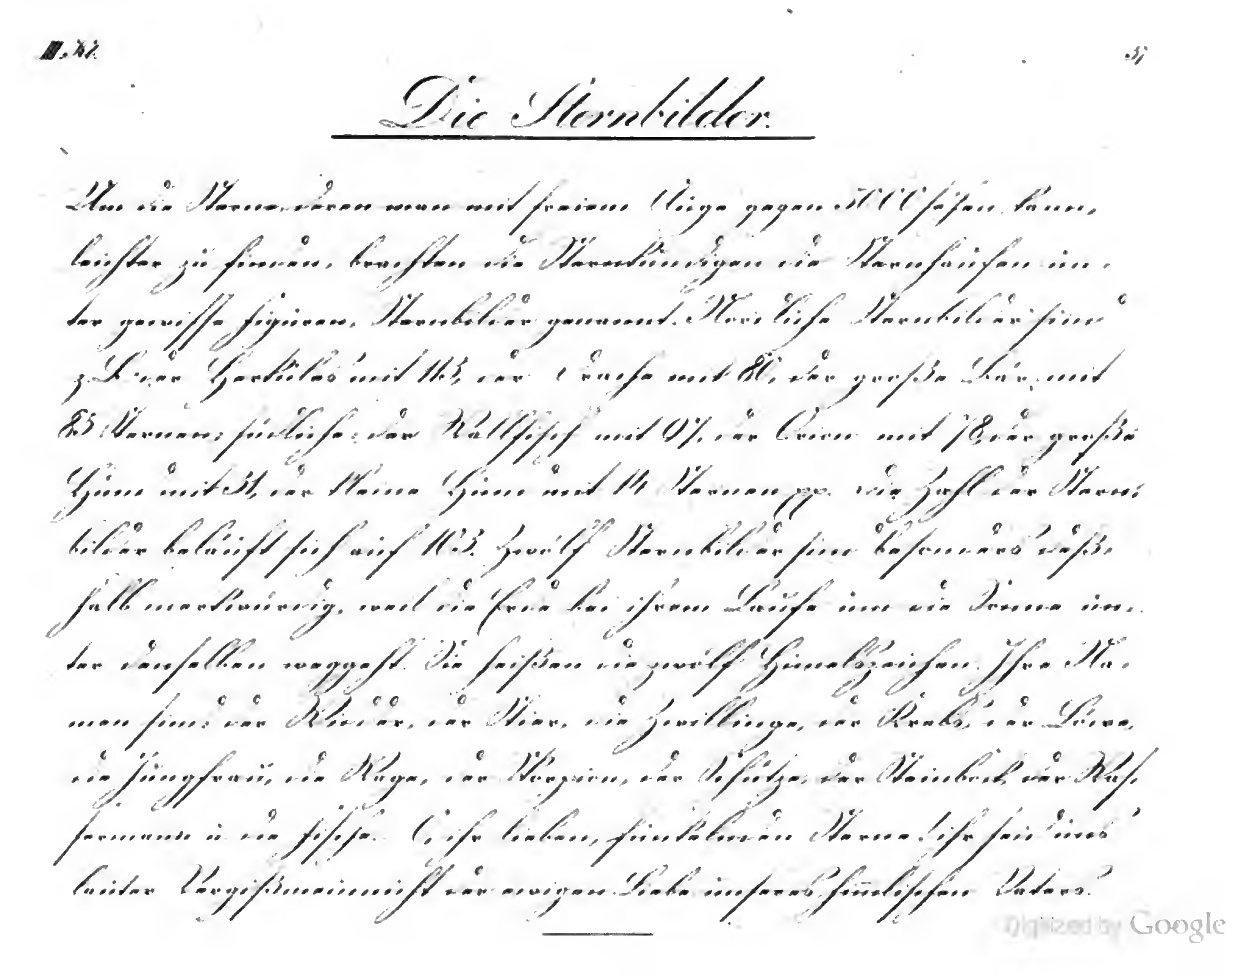 37
Die Sternbilder.
Um die Sterne, deren man mit freiem Auge gegen 5000 sehen kann,
leichter zu finden, brachten die Sternkundigen die Sternhaufen un-
ter gewisse Figuren, Sternbilder genannt. Nördliche Sternbilder sind
z. B. der Herkules mit 113, der Drache mit 80, der große Bär mit
85 Sternen; südliche: der Wallfisch mit 97, der Orion mit 78, der große
Hund mit 31, der kleine Hund mit 14 Sternen pp. Die Zahl der Stern-
bilder beläuft sich auf 103. Zwölf Sternbilder sind besonders deß-
halb merkwürdig, weil die Erde bei ihrem Laufe um die Sonne un-
ter denselben weggeht. Sie heißen die zwölf Himelszeichen. Ihre Na-
men sind: der Widder, der Stier, die Zwillinge, der Krebs, der Löwe,
die Jungfrau, die Wage, der Skorpion, der Schütze, der Steinbock, der Was-
sermann u. die Fische. O, ihr lieben, funkelnden Sterne! ihr seid uns
lauter Vergißmeinnicht der ewigen Liebe unseres himlischen Vaters.
Digitized by Google